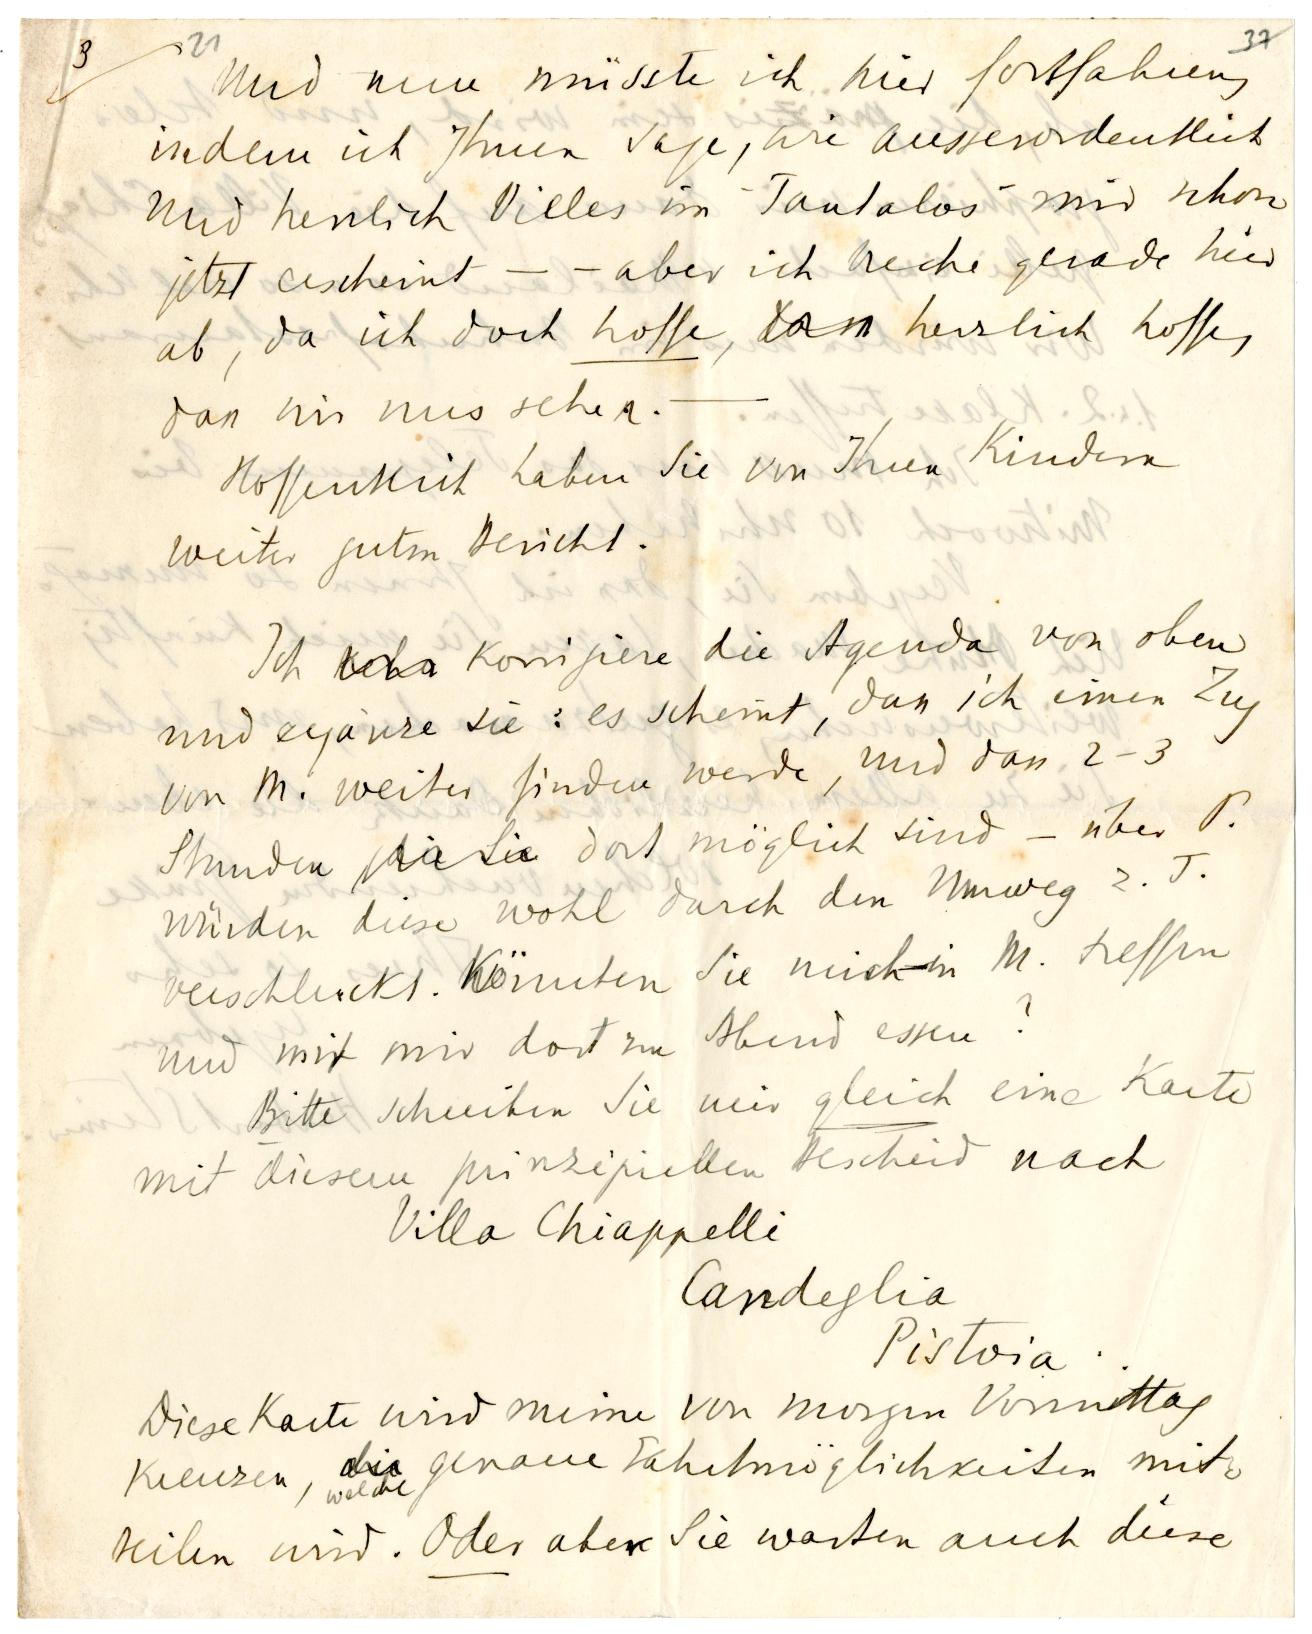 3 21 37
Und nun müsste ich hier fortfahren,
indem ich Ihnen sage, wie ausserordentlich
und herrlich Vieles im "Tantalos" mir schon
jetzt erscheint — — aber ich breche gerade hier
ab, da ich doch hoffe, herzlich hoffe,
dass wir uns sehen. —
Hoffentlich haben Sie von Ihren Kindern
weiter guten Bericht.
Ich korrigiere die Agenda von oben
und ergänze sie: es scheint, dass ich einen Zug
von M. weiter finden werde, und dass 2–3
Stunden dort möglich sind – über P.
würden diese wohl durch den Umweg z. T.
verschluckt. Könnten Sie mich in M. treffen
und mit mir dort zu Abend essen?
Bitte schreiben Sie mir gleich eine Karte
mit diesem prinzipiellen Bescheid nach
Villa Chiappelli
Candeglia
Pistoia.
Diese Karte wird meine von morgen Vormittag
kreuzen, die welche genaue Fahrtmöglichkeiten mit-
teilen wird. Oder aber Sie warten auch diese